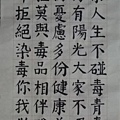 人生不碰毒青春
有陽光大家不
憂慮多份健康
莫與毒品相伴
拒絕染毒你我